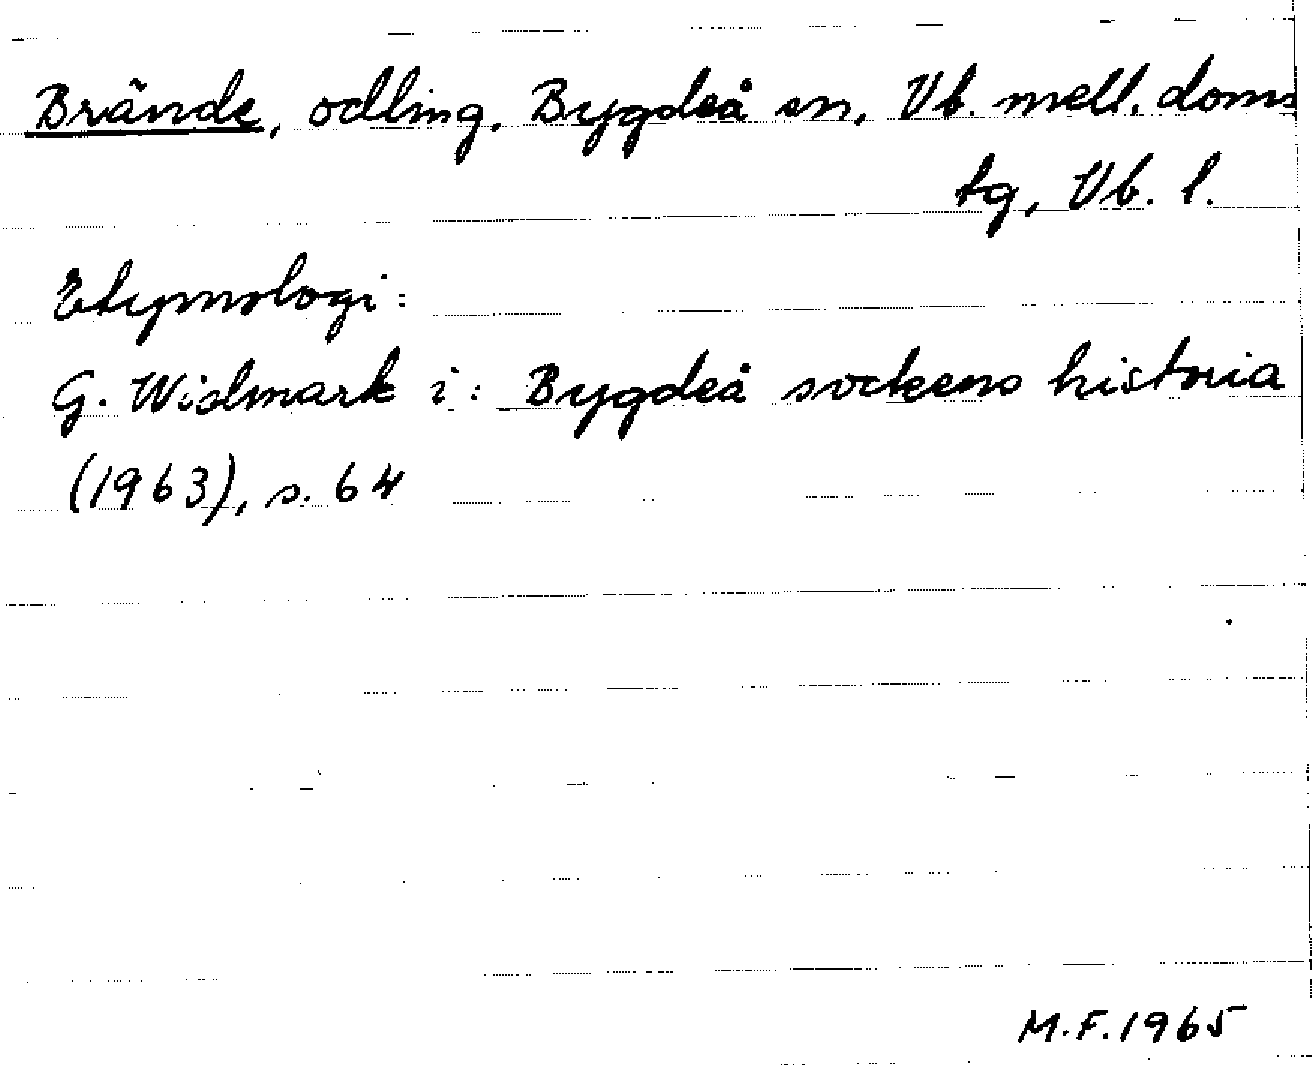 Brände, odling, Bygdeå sn, Vb. mell. doms
tg, Vb. l.
Etymologi:
G. Widmark i: Bygdeå sockens historia
(1963), s. 64
M.F. 1965